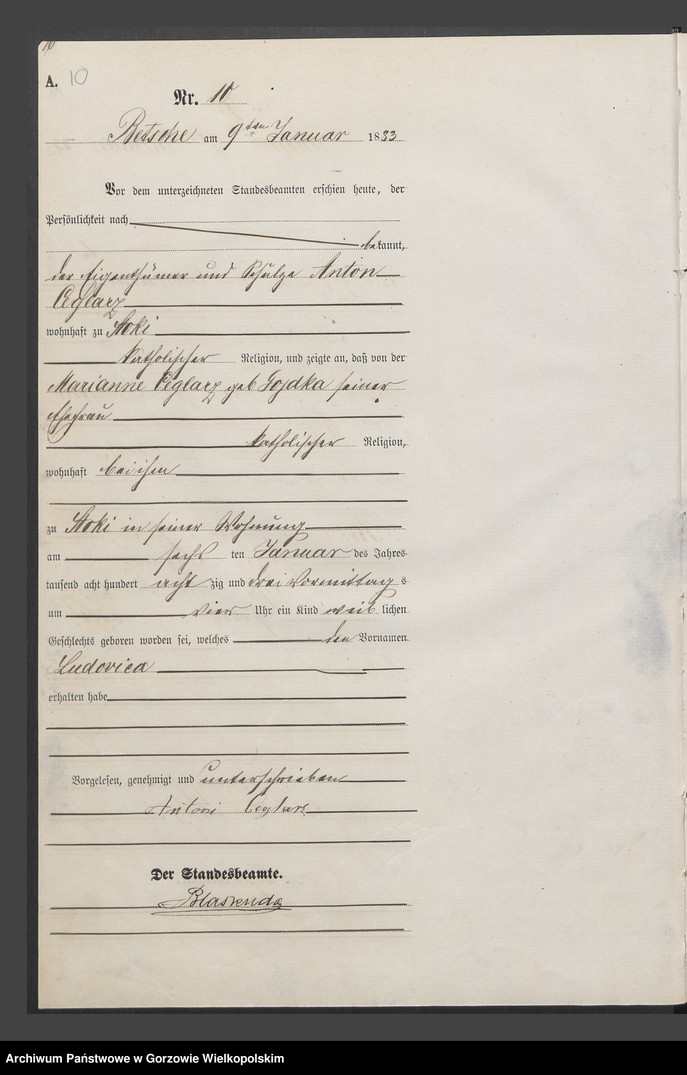 10
A. 10
Nr. 10
Betsche am 9ten Januar 1883
Vor dem unterzeichneten Standesbeamten erschien heute, der
Persönlichkeit nach
bekannt,
der Eigenthümer und Schulze Anton
Ceglarz
wohnhaft zu Stoki
katholischer Religion, und zeigte an, daß von der
Marianne Ceglarz geb Gozdka seiner
Ehefrau
katholischer Religion,
wohnhaft bei ihm
zu Stoki in seiner Wohnung
am sechs ten Januar des Jahres
tausend acht hundert acht zig und drei Vormittag s
um vier Uhr ein Kind weib lichen
Geschlechts geboren worden sei, welches den Vornamen
Ludovica
erhalten habe
Vorgelesen, genehmigt und unterschrieben
Antoni Ceglarz
Der Standesbeamte.
Archiwum Państwowe w Gorzowie Wielkopolskim